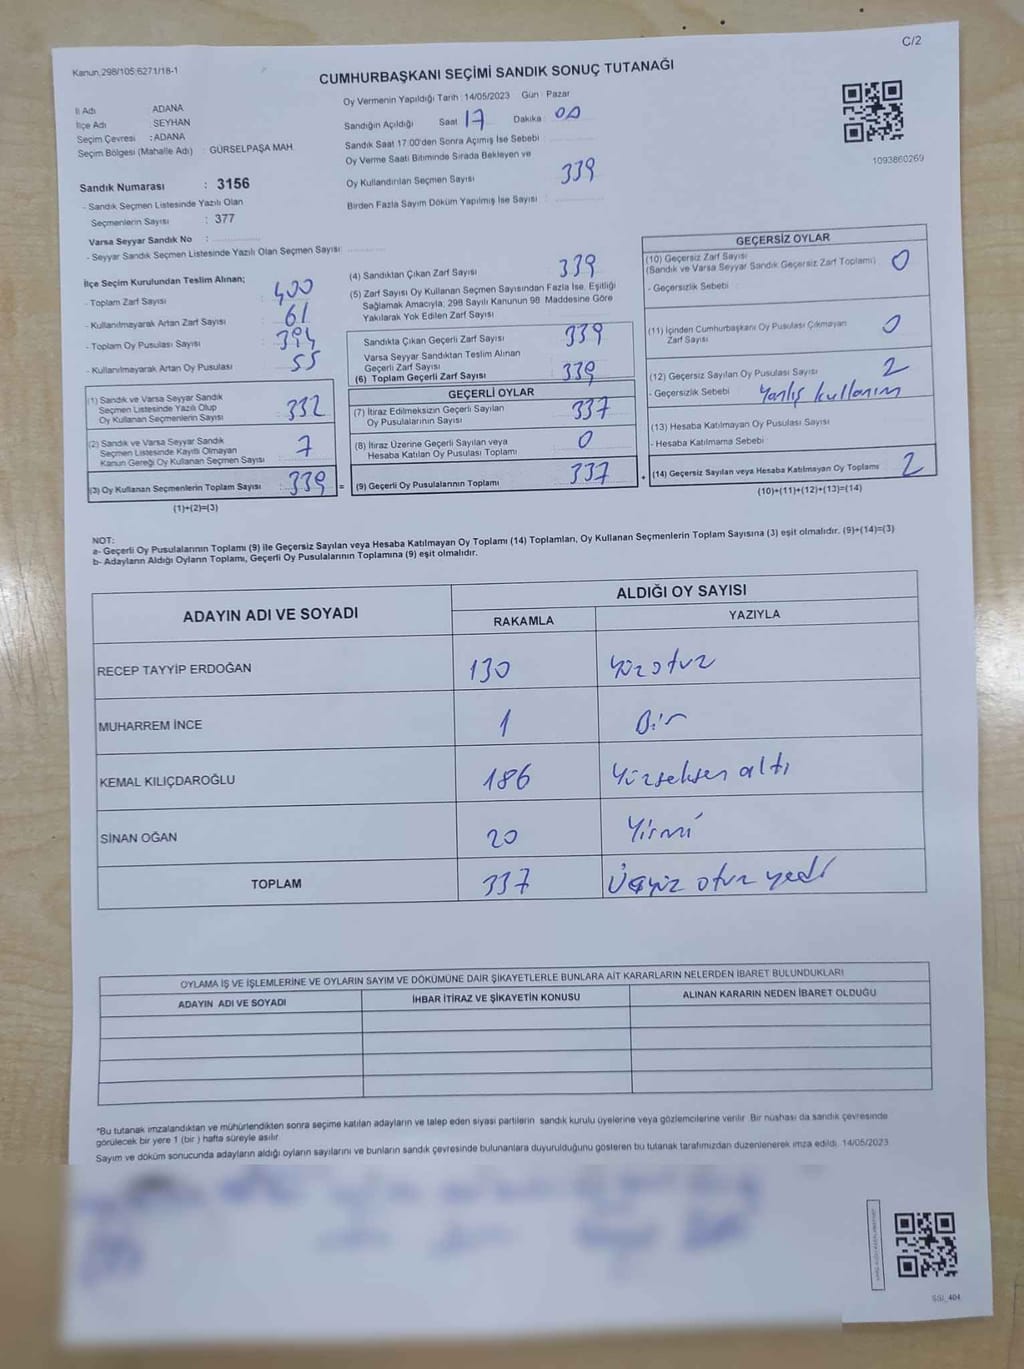 C/2
Kanun,298/105;6271/18-1
CUMHURBAŞKANI SEÇİMİ SANDIK SONUÇ TUTANAĞI
İl Adı ADANA
İlçe Adı SEYHAN
Seçim Çevresi : ADANA
Seçim Bölgesi (Mahalle Adı) : GÜRSELPAŞA MAH
Sandık Numarası : 3156
- Sandık Seçmen Listesinde Yazılı Olan
Seçmenlerin Sayısı : 377
Varsa Seyyar Sandık No :
- Seyyar Sandık Seçmen Listesinde Yazılı Olan Seçmen Sayısı:
Oy Vermenin Yapıldığı Tarih : 14/05/2023 Gün : Pazar
Sandığın Açıldığı Saat 17 Dakika : 00
Sandık Saat 17:00'den Sonra Açımış İse Sebebi :
Oy Verme Saati Bitiminde Sırada Bekleyen ve
Oy Kullandırılan Seçmen Sayısı : 339
Birden Fazla Sayım Döküm Yapılmış İse Sayısı :
1093860269
İlçe Seçim Kurulundan Teslim Alınan;
- Toplam Zarf Sayısı : 400
- Kullanılmayarak Artan Zarf Sayısı : 61
- Toplam Oy Pusulası Sayısı : 394
- Kullanılmayarak Artan Oy Pusulası : 55
(1) Sandık ve Varsa Seyyar Sandık
Seçmen Listesinde Yazılı Olup
Oy Kullanan Seçmenlerin Sayısı : 332
(2) Sandık ve Varsa Seyyar Sandık
Seçmen Listesinde Kayıtlı Olmayan
Kanun Gereği Oy Kullanan Seçmen Sayısı : 7
(3) Oy Kullanan Seçmenlerin Toplam Sayısı : 339 =
(1)+(2)=(3)
(4) Sandıktan Çıkan Zarf Sayısı : 339
(5) Zarf Sayısı Oy Kullanan Seçmen Sayısından Fazla İse, Eşitliği
Sağlamak Amacıyla; 298 Sayılı Kanunun 98. Maddesine Göre
Yakılarak Yok Edilen Zarf Sayısı :
Sandıkta Çıkan Geçerli Zarf Sayısı : 339
Varsa Seyyar Sandıktan Teslim Alınan
Geçerli Zarf Sayısı :
(6) Toplam Geçerli Zarf Sayısı : 339
GEÇERLİ OYLAR
(7) İtiraz Edilmeksizin Geçerli Sayılan
Oy Pusulalarının Sayısı : 337
(8) İtiraz Üzerine Geçerli Sayılan veya
Hesaba Katılan Oy Pusulası Toplamı : 0
(9) Geçerli Oy Pusulalarının Toplamı : 337 +
GEÇERSİZ OYLAR
(10) Geçersiz Zarf Sayısı
(Sandık ve Varsa Seyyar Sandık Geçersiz Zarf Toplamı) : 0
- Geçersizlik Sebebi :
(11) İçinden Cumhurbaşkanı Oy Pusulası Çıkmayan
Zarf Sayısı : 0
(12) Geçersiz Sayılan Oy Pusulası Sayısı : 2
- Geçersizlik Sebebi : Yanlış kullanım
(13) Hesaba Katılmayan Oy Pusulası Sayısı :
- Hesaba Katılmama Sebebi :
(14) Geçersiz Sayılan veya Hesaba Katılmayan Oy Toplamı : 2
(10)+(11)+(12)+(13)=(14)
NOT:
a- Geçerli Oy Pusulalarının Toplamı (9) ile Geçersiz Sayılan veya Hesaba Katılmayan Oy Toplamı (14) Toplamları, Oy Kullanan Seçmenlerin Toplam Sayısına (3) eşit olmalıdır. (9)+(14)=(3)
b- Adayların Aldığı Oyların Toplamı, Geçerli Oy Pusulalarının Toplamına (9) eşit olmalıdır.
ADAYIN ADI VE SOYADI ALDIĞI OY SAYISI
RAKAMLA YAZIYLA
RECEP TAYYİP ERDOĞAN 130 Yüz otuz
MUHARREM İNCE 1 Bir
KEMAL KILIÇDAROĞLU 186 Yüzseksen altı
SİNAN OĞAN 20 Yirmi
TOPLAM 337 Üçyüz otuz yedi
OYLAMA İŞ VE İŞLEMLERİNE VE OYLARIN SAYIM VE DÖKÜMÜNE DAİR ŞİKAYETLERLE BUNLARA AİT KARARLARIN NELERDEN İBARET BULUNDUKLARI
ADAYIN ADI VE SOYADI İHBAR İTİRAZ VE ŞİKAYETİN KONUSU ALINAN KARARIN NEDEN İBARET OLDUĞU
*Bu tutanak imzalandıktan ve mühürlendikten sonra seçime katılan adayların ve talep eden siyasi partilerin sandık kurulu üyelerine veya gözlemcilerine verilir. Bir nüshası da sandık çevresinde
görülecek bir yere 1 (bir ) hafta süreyle asılır.
Sayım ve döküm sonucunda adayların aldığı oyların sayılarını ve bunların sandık çevresinde bulunanlara duyurulduğunu gösteren bu tutanak tarafımızdan düzenlenerek imza edildi. 14/05/2023